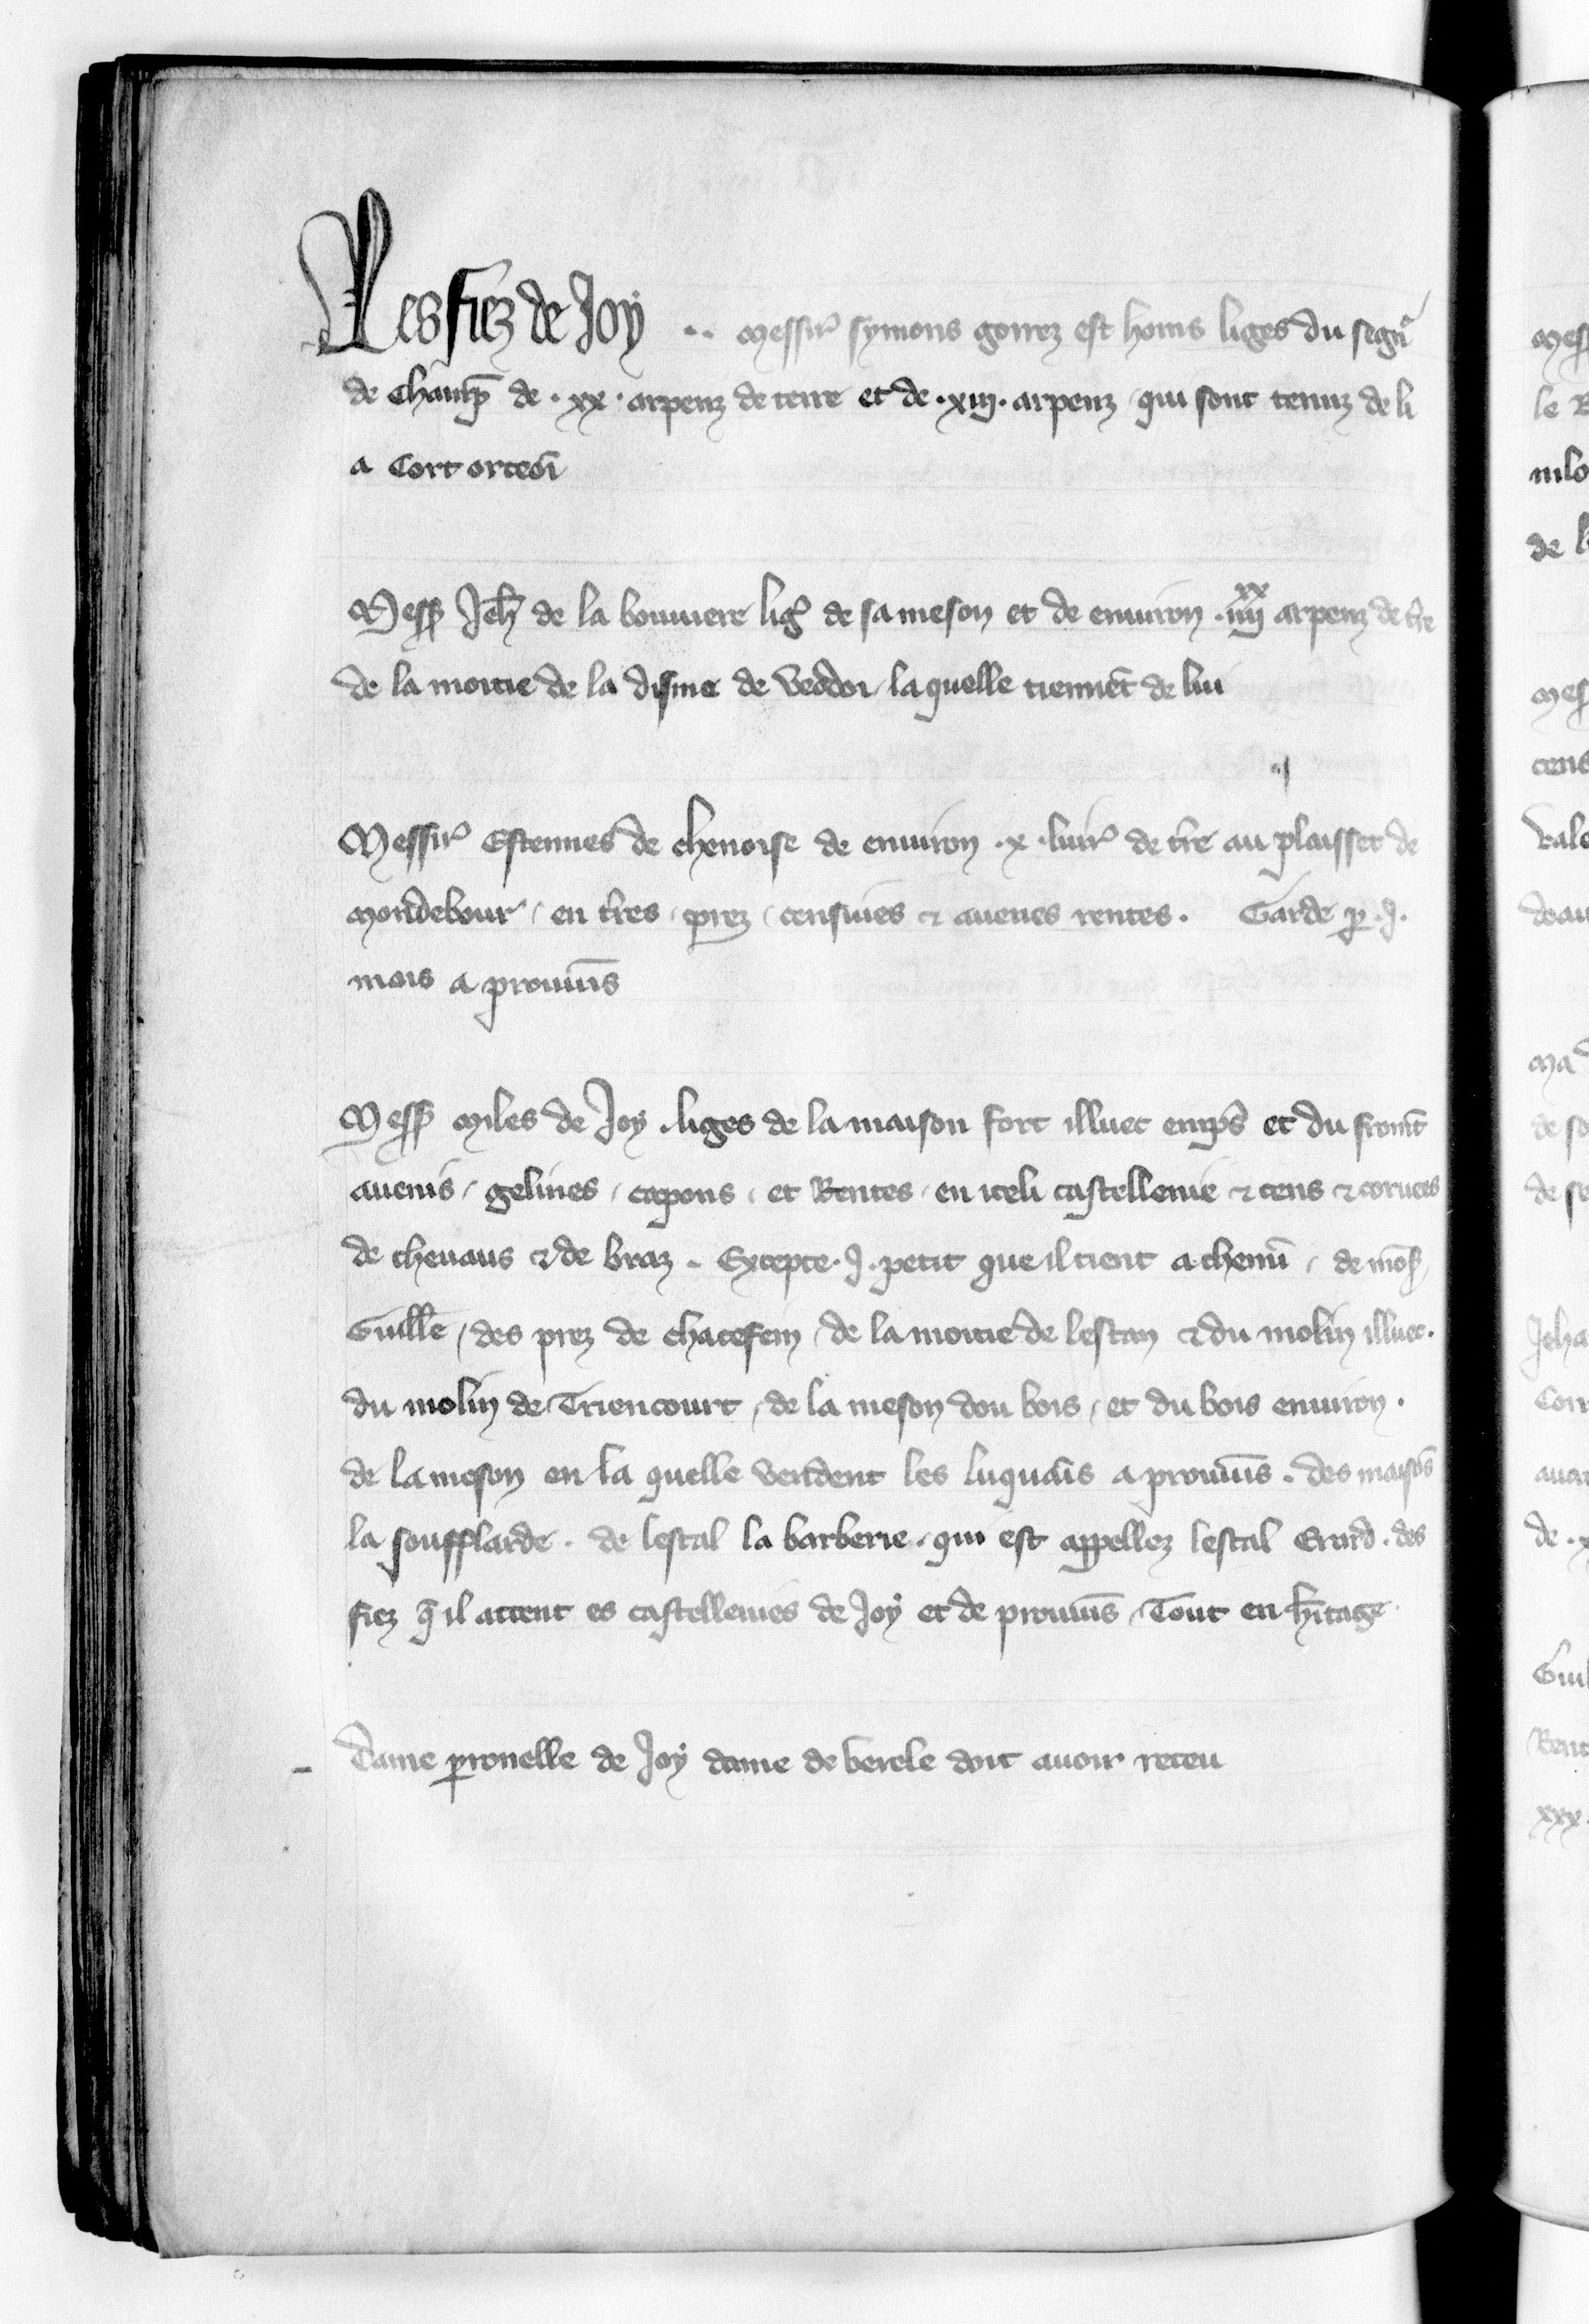 Les fiez de Joy .. messir̾ symons gorrez est homs liges du segn̾r
de Chāmp̄ de . xx . arpenz de terre et de . xiii . arpenz / qui sont tenuz de li
a Cort orteō
Mess̾ Jeh̄ de la bouuiere lig̾ de sa meson et de enuiron . iiiixx arpenz de tr̄e
de la moitie de la disme de veodoi / la quelle tiennēt de lui
Messir̾ Estennes de chenoise de enuiron . x . liur̾ de tr̄e au plaisset de
mondebour / en tr̄es / prez / censiues & auenes rentes . Garde p̱ . j .
mois a prouuīs
Mess̾ miles de Joy . liges de la maison fort illuec emp̄s et du fromēt
auenis / gelines / capons / et Rentes / en iceli castellenie & cens & coruees
de cheuaus & de braz . Excepte . j . petit que il tient a chenu̅ / de mōs̾
Guill̄e / des prez de chacefein / de la moitie de lestan & du molin illuec .
du molin de Triencourt / de la meson dou bois / et du bois enuiron .
de la meson en la quelle vendent les luquāis a prouuīs . des maisōs
la soufflarde . de lestal la barberie . qui est appellez lestal Erard . des
fiez q̄ il attent es castellenies de Joy et de prouuīs / Tout en h̄itage
Dame p̱ronelle de Joy dame de bercle doit auoir receu